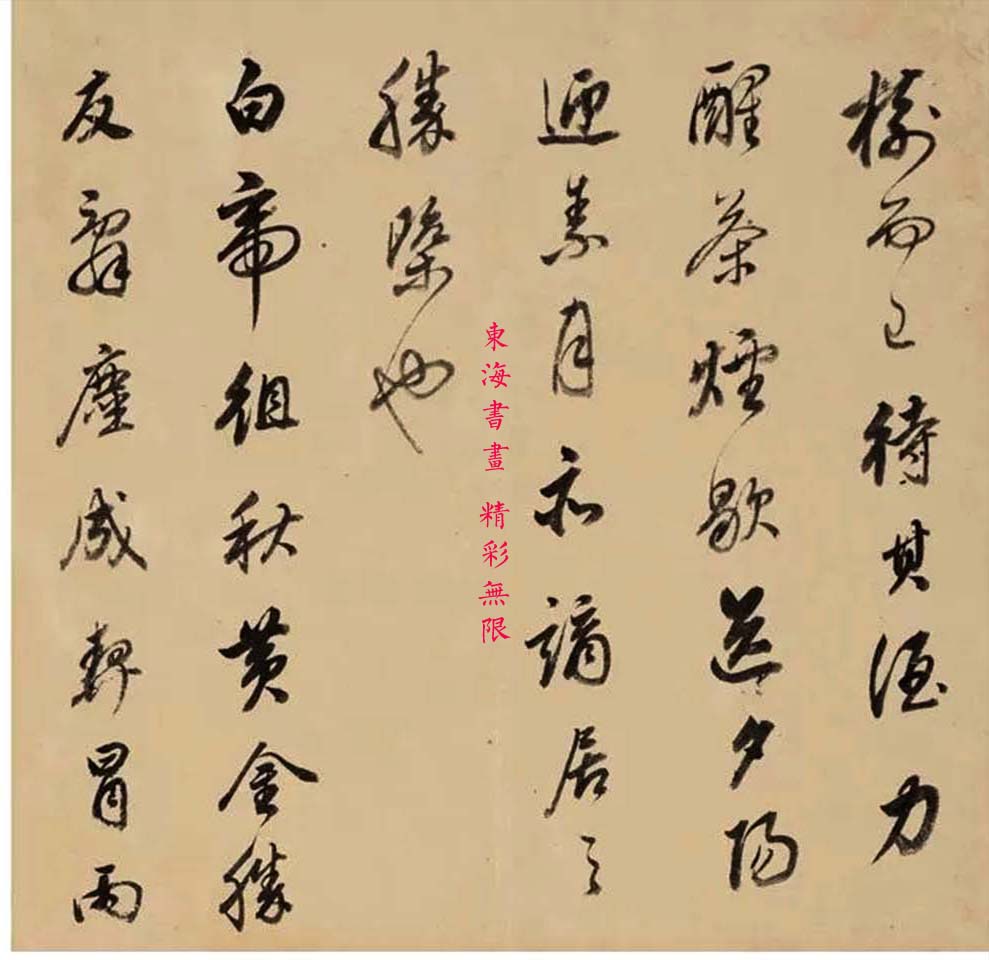 樹而已待其酒力
醒茶煙歇送夕陽
迎素月亦謫居之
勝槩也
白帝徂秋黃金勝
友辭塵成契冒雨
東海書畫 精彩無限